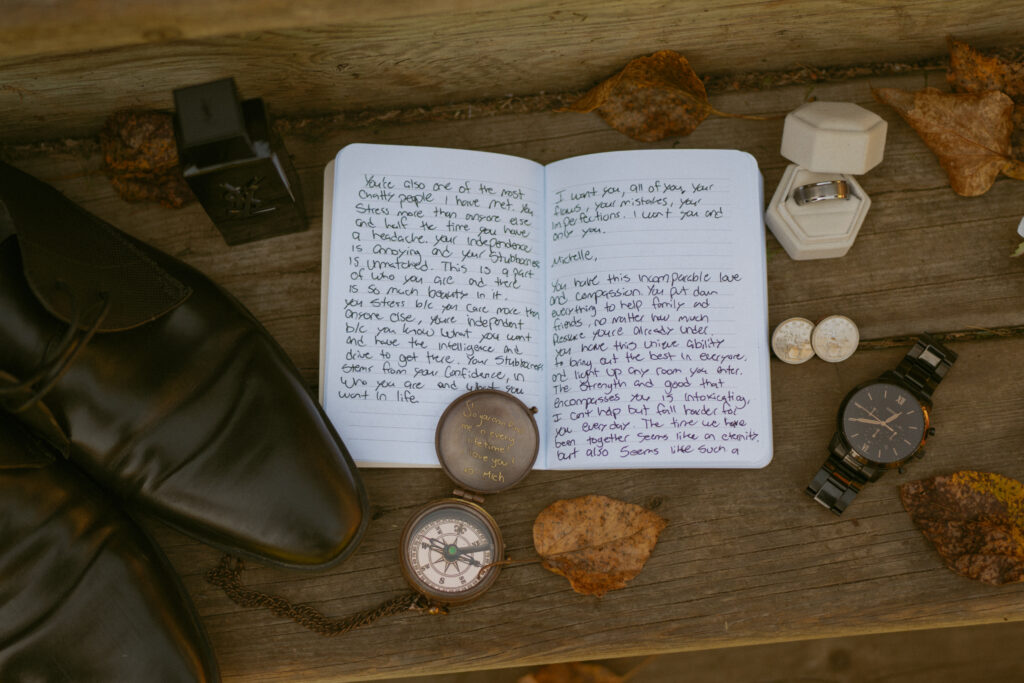 You're also one of the most
chatty people I have met. You
Stress more than anyone else
and half the time you have
a headache. your independence
is annoying and your Stubborness
is unmatched. This is a part
of who you are and there
is so much beauty in it.
you stress b/c you care more than
anyone else, youre independent
b/c you know what you want
and have the intelligence and
drive to get there. Your Stubborness
Stems from your confidence, in
who you are and what you
want in life.
I want you, all of you, your
flaws, your mistakes, your
imperfections. I want you and
only you.
Michelle,
You have this incomparable love
and compassion. You put down
everything to help family and
friends, no matter how much
you're already under.
you have this unique ability
to bring out the best in everyone,
and light up any room you enter.
The strength and good that
encompasses you is intoxicating,
I cant help but fall harder for
you everyday. The time we have
been together seems like an eternity,
but also seems like such a
me in every
lifetime!
I love you!
Mich